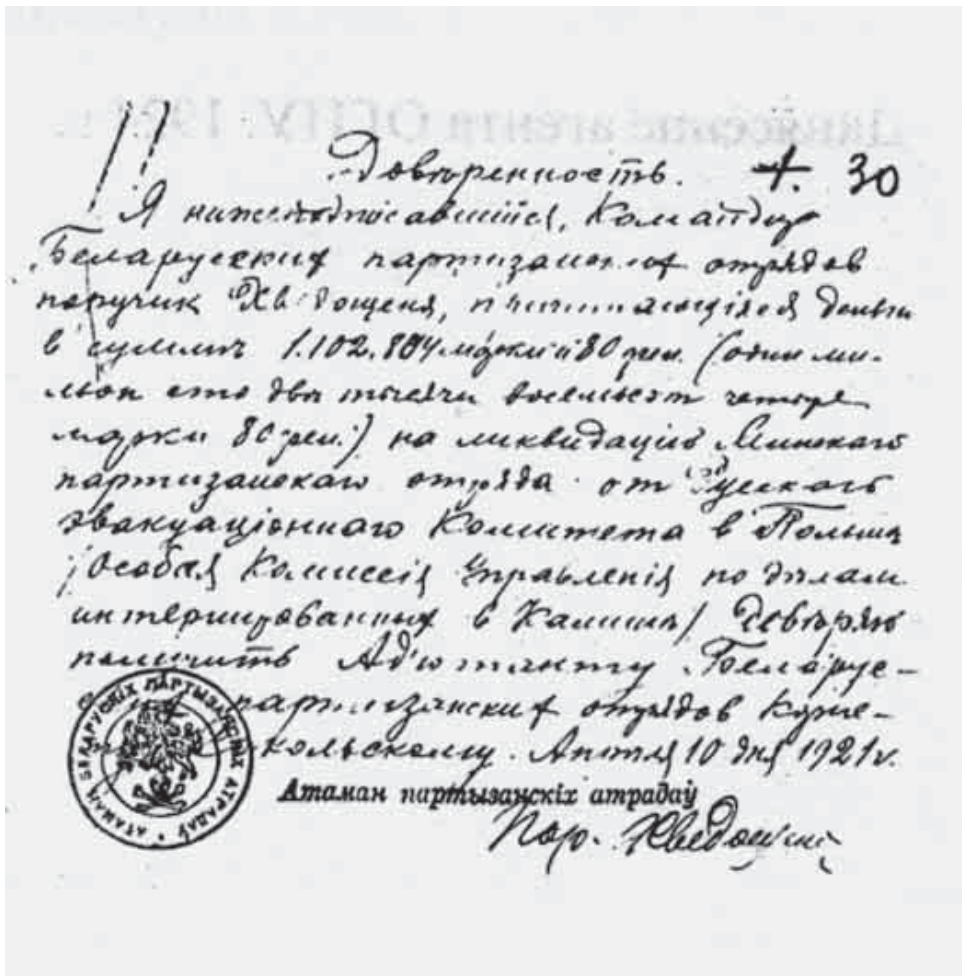 Довѣренность. 4. 30
Я нижеподписавшійся, Командир
Беларусских партизанских отрядов
поручик Хведощеня, деньги
в суммѣ 1.102.804 марки 80 фен. (один ми-
льон сто двѣ тысячи восемьсот четыре
марки 80 фен.) на ликвидацію Минскаго
партизанскаго отряда от Русскаго
эвакуаціоннаго Комитета в Польшѣ
/Особая Комиссія Управленія по дѣлам
интернированных в Калишѣ/ довѣряю
получить Адъютанту Беларус-
партизанских отрядов Корже-
кольскому. Апрѣля 10 дня 1921 г.
Атаман партызанскіх атрадаў
Пор. Хведощеня
АТАМАН БЕЛАРУСКІХ ПАРТЫЗАНСКІХ АТРАДАЎ